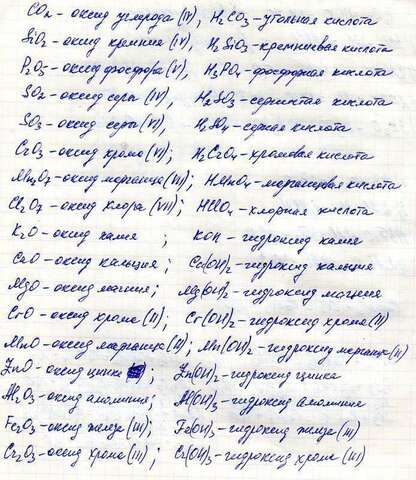 CO2 - оксид углерода (IV), H2CO3 - угольная кислота
SiO2 - оксид кремния (IV), H2SiO3 - кремниевая кислота
P2O5 - оксид фосфора (V), H3PO4 - фосфорная кислота
SO2 - оксид серы (IV), H2SO3 - сернистая кислота
SO3 - оксид серы (VI); H2SO4 - серная кислота
CrO3 - оксид хрома (VI); H2CrO4 - хромовая кислота
Mn2O7 - оксид марганца (VII); HMnO4 - марганцовая кислота
Cl2O7 - оксид хлора (VII); HClO4 - хлорная кислота
K2O - оксид калия ; KOH - гидроксид калия
CaO - оксид кальция ; Ca(OH)2 - гидроксид кальция
MgO - оксид магния ; Mg(OH)2 - гидроксид магния
CrO - оксид хрома (II) ; Cr(OH)2 - гидроксид хрома (II)
MnO - оксид марганца (II); Mn(OH)2 - гидроксид марганца (II)
ZnO - оксид цинка ; Zn(OH)2 - гидроксид цинка
Al2O3 - оксид алюминия; Al(OH)3 - гидроксид алюминия
Fe2O3 - оксид железа (III); Fe(OH)3 - гидроксид железа (III)
Cr2O3 - оксид хрома (III) ; Cr(OH)3 - гидроксид хрома (III)